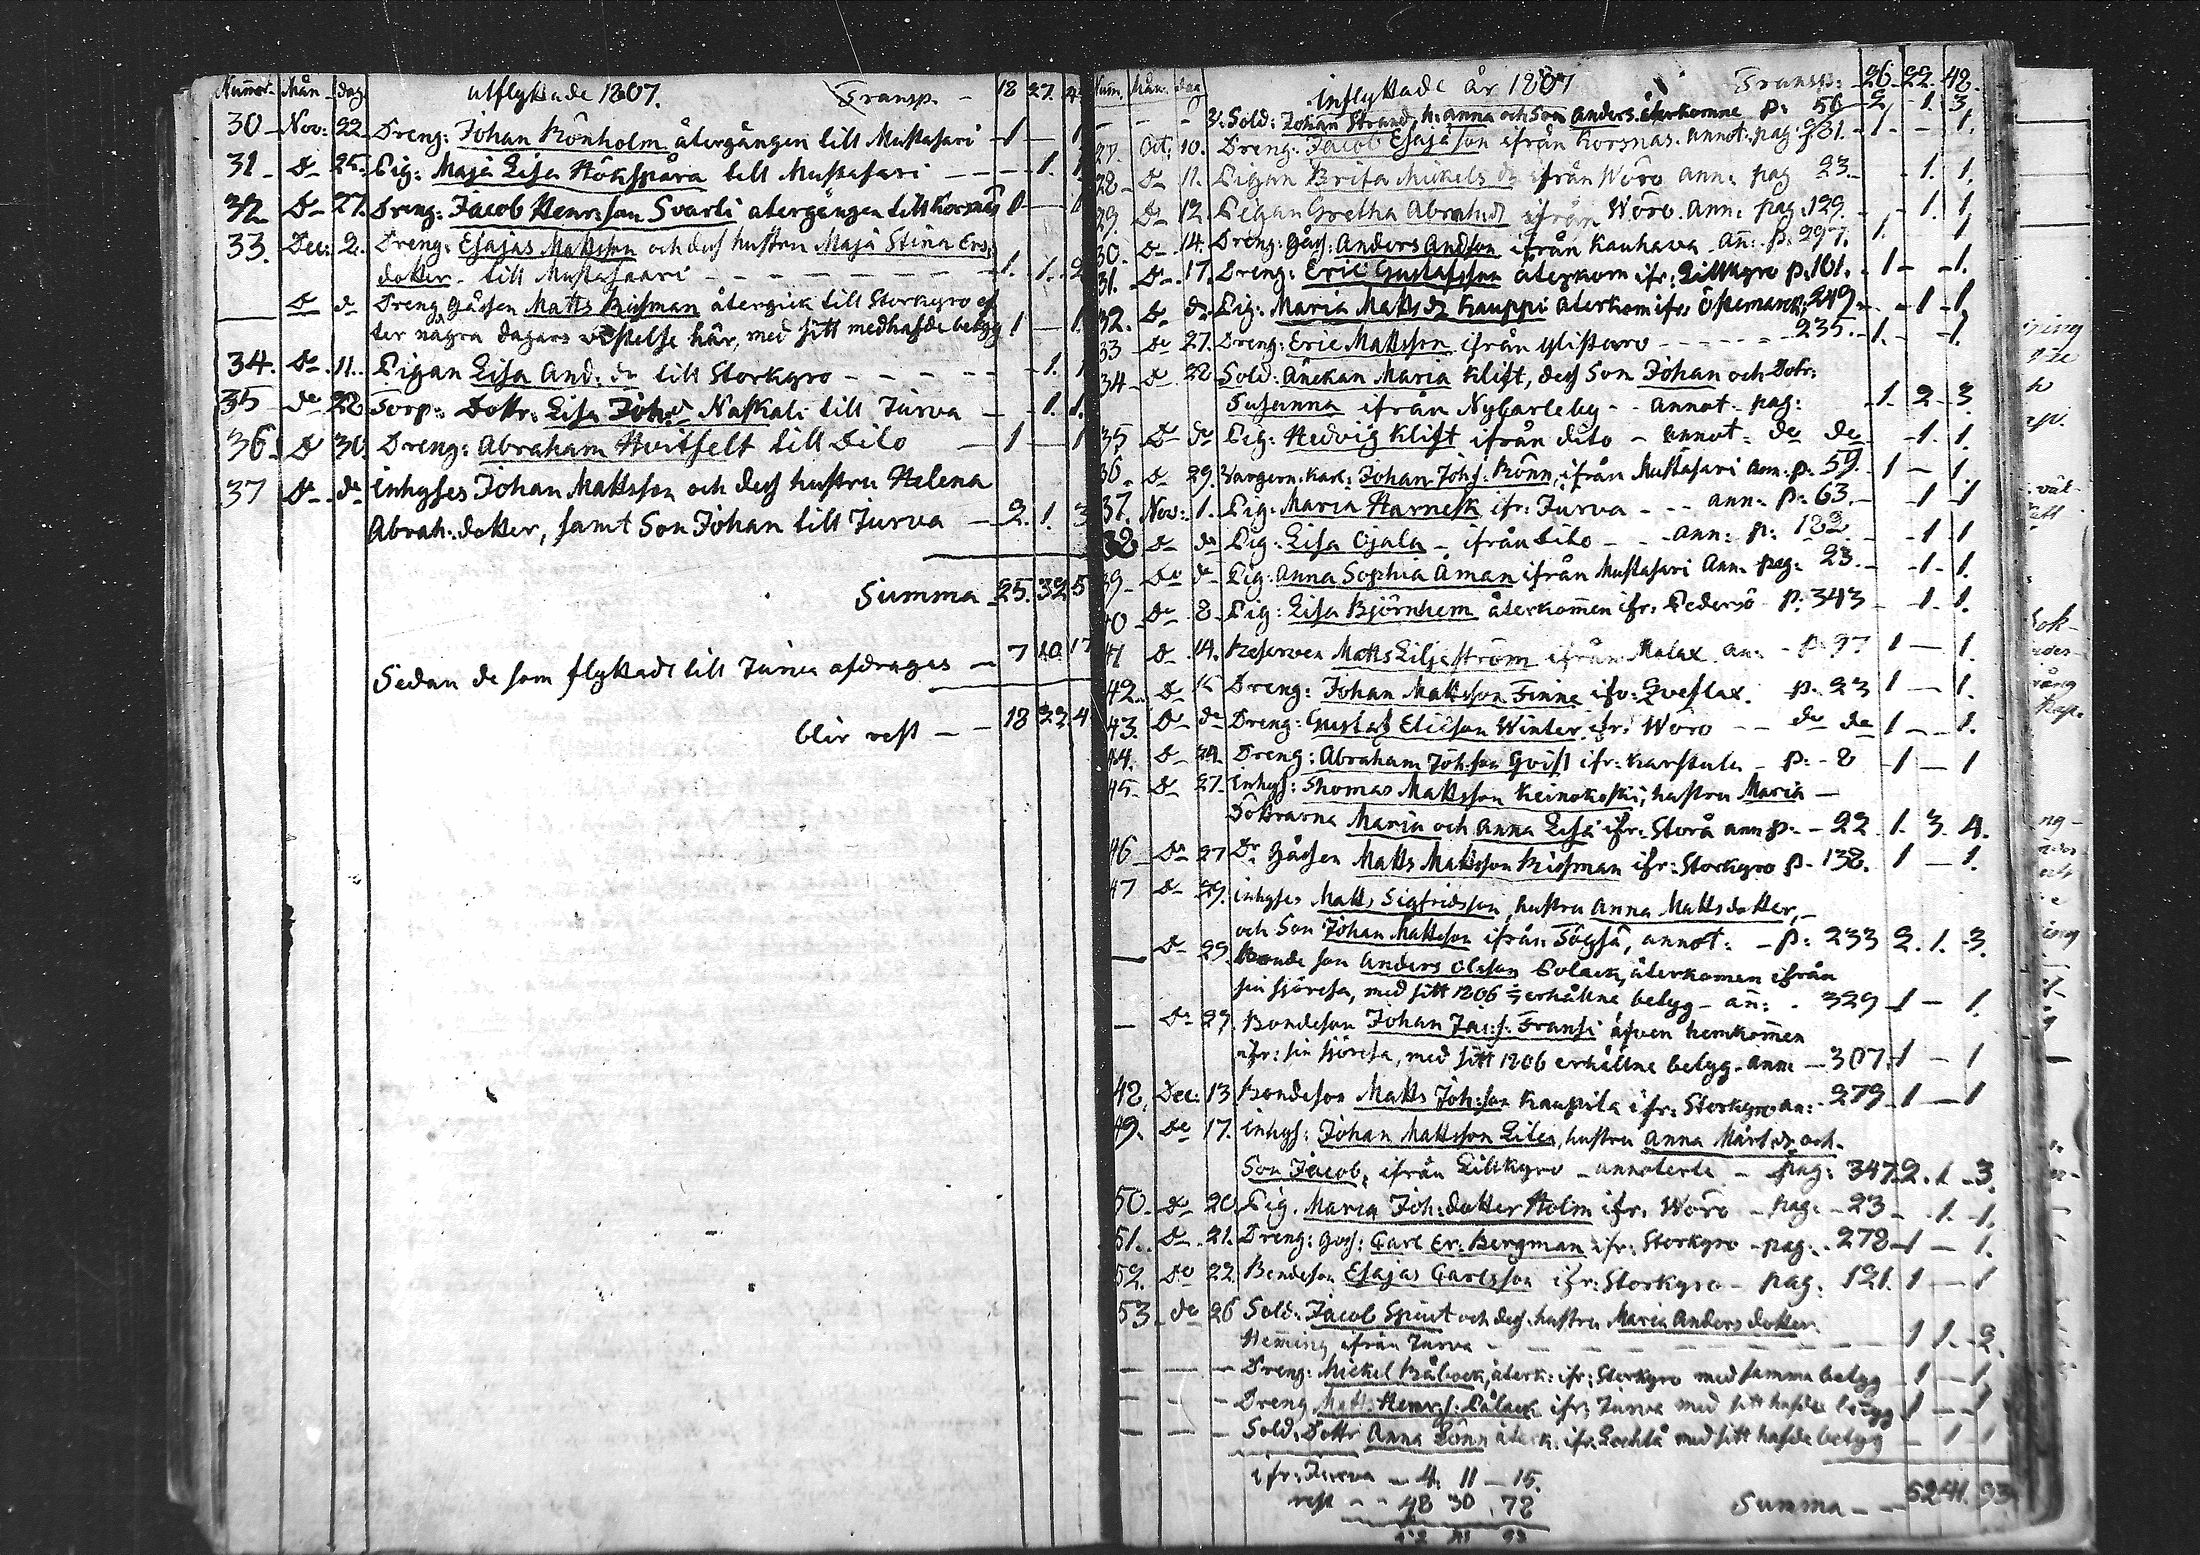 Num̄er. Mån dag utflyttade 1807. Transp. - 18 27. 4
30 - Nov: 22 Dreng: Johan Rönholm återgången till Mustasari - 1 - 1
31 - Do 25. Pig: Maja Lisa Hökspåra till Mustasari - - - 1. 1
32 Do 27. Dreng: Jacob Henr:son Svarti atergången till Korsnäs 1 - 1
33. Dec: 2. Dreng: Esajas Mattsson och dess hustru Maja Stina Ers:
dotter - till Mustasaari - - - - 1. 1. 2
Do do Dreng Gåssen Matts Risman återgick till Storkyro ef
ter några dagars vistelse här, med sitt medhafde betyg 1 - 1
34. Do 11. Pigan Lisa And: dr till Storkyro - - - - 1. 1
35 - do 28 Torp: Dottr: Lisa Joh:dr Naskali till Jurva - - 1. 1.
36 - D 30 Dreng: Abraham Hvitfelt till Dito - 1 - 1
37 Do do Inhyses Johan Mattsson och dess hustru Helena
Abrah: dotter, samt Son Johan till Jurva - 2. 1. 3
Summa 25. 32 5
Sedan de som flyttadt till Jurva afdrages - 7 10 17
blir rest - - 18 22 4
Num. Mån. dag inflyttade år 1807 Transp: 26. 22. 48.
- - - V: Sold: Johan Strand, h: Anna och Son Anders återkomne p: 56 2. 1. 3
27. Oct: 10. Dreng: Jacob Esajæson ifrån Korsnäs. annot: pag: 231. 1 - 1.
28 - Do 11. Pigan Brita Mickels dr ifrån Wörö ann: pag 23. - 1. 1.
29. Do 12. Pigan Gretha Abrah:dr ifrån Wörö. Ann: pag: 129. - 1. 1
30. Do 14. Dreng: gåss: Anders Andsson ifrån Kauhava an̄: p: 297. 1. 1
31. Do 17. Dreng: Eric Gustafsson återkom ifr: Lillkyro p: 101. 1 - 1.
32. Do do Pig: Maria Matts dr Kauppi aterkom ifr: Östermark, 249 - 1 - 1
33 Do 27. Dreng: Eric Mattsson ifrån Ylistaro - - - 235. - 1. - 1.
34 - Do 28 Sold: Änckan Maria Klift, dess Son Johan och Dotr:
Susanna ifrån Nykarleby - - Annot - pag: 1. 2 - 3.
35 Do do Pig: Hedvig Klift ifrån dito - Annot: do do - 1. 1.
36. Do 29. Vargern. Karl: Johan Joh:s: Rönn, ifrån Mustasari ann: p: 59. 1 - 1.
37. Nov: 1. Pig: Maria Harnesk ifr: Jurva - - ann: p: 63. - 1 - 1
38 Do do Pig: Lisa Ojala - ifrån dito - - ann: p: 182. - 1 - 1
39 - Do do Pig: Anna Sophia Åman ifrån Mustasari Ann: pag: 23. - 1 - 1.
40 Do 8. Pig: Lisa Björnhem återkom̄en ifr: Pedersö - p: 343 - 1 - 1.
41 Do 14. Reserven Matts Liljeström ifrån Malax. an: - p: 97 1 - 1.
42. Do 15 Dreng: Johan Mattsson Finne ifr: Qveflax. p: 23 1 - 1.
43. Do do Dreng: Gustaf Elieson Winter ifr: Wörö - - do do 1 - 1.
44. Do 24 Dreng: Abraham Joh:son Qvist ifr: Karstula - p: 8 1 - 1
45 - Do 27. inhys: Thomas Mattsson Keinokoski, hustru Maria -
Döttrarna Maria och Anna Lisa ifr: Storå ann p: - 22. 1. 3. 4.
46 Do 27 Dr Gåssen Matts Mattsson Risman ifr: Storkyro p - 138. 1 - 1.
47 Do 29. inhyses Matts Sigfridsson, hustru Anna Mattsdotter, -
och Son Johan Mattsson ifrån Sögså, annot: - p: 233 2. 1. 3.
Do 29. Bonde son Anders Olsson Polack, återkomen ifrån
sin sjöresa, med sitt 1806 erhållne betyg - an̄: 329 1 - 1.
Do 29. Bondeson Johan Jac:s: Fransi äfven hemkom̄en
ifr: sin sjöresa, med sitt 1806 erhållne betyg. ann: - 307. 1 - 1
48. Dec: 13 Bondeson Matts Joh:son Kaupila ifr: Storkyro an: 279 1 - 1
49. Do 17. inhys: Johan Mattsson Lilia, hustru Anna Mårts dr och
Son Jacob, ifrån Lillkyro - annoterte - pag: 347. 2. 1 - 3.
50. Do 20. Pig. Maria Joh:dotter Holm ifr. Wörö - pag: - 23 - 1. 1.
51. Do 21. Dreng: Goss: Carl Er: Bergman ifr: Storkyro - pag: 278 1 - 1.
52. Do 22. Bondeson Esajas Carlsson ifr: Storkyro - pag: 121. 1 - 1
53 - do 26 Sold: Jacob Spiut och dess hustru Maria Anders dotter
Hem̄ing ifrån Jurva - - - - 1 1 - 2.
- - - Dreng: Mickel Båbock, återk: ifr: Storkyro med samma betyg - 1 - 1
- - - Dreng Matts Henr:s: Pålack ifr: Jurva med sitt hafda betyg 1 - 1
- - - Sold. Dottr Anna Rönn återk: ifr: Lochtå med sitt hafde betyg - 1 1
ifr: Jurva - 4. 11 - 15.
rest - - 48 30. 78
52 41 93
Summa - - 52 41. 93